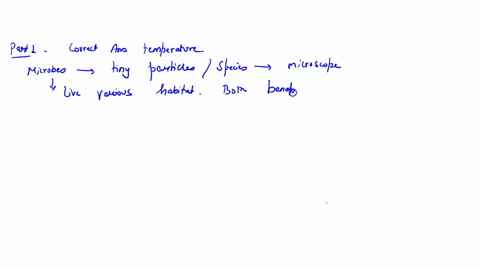 Part 1. Correct Ans temperature.
Microbes → tiny particles / Species → microscope
↓ Live various habitat. Both